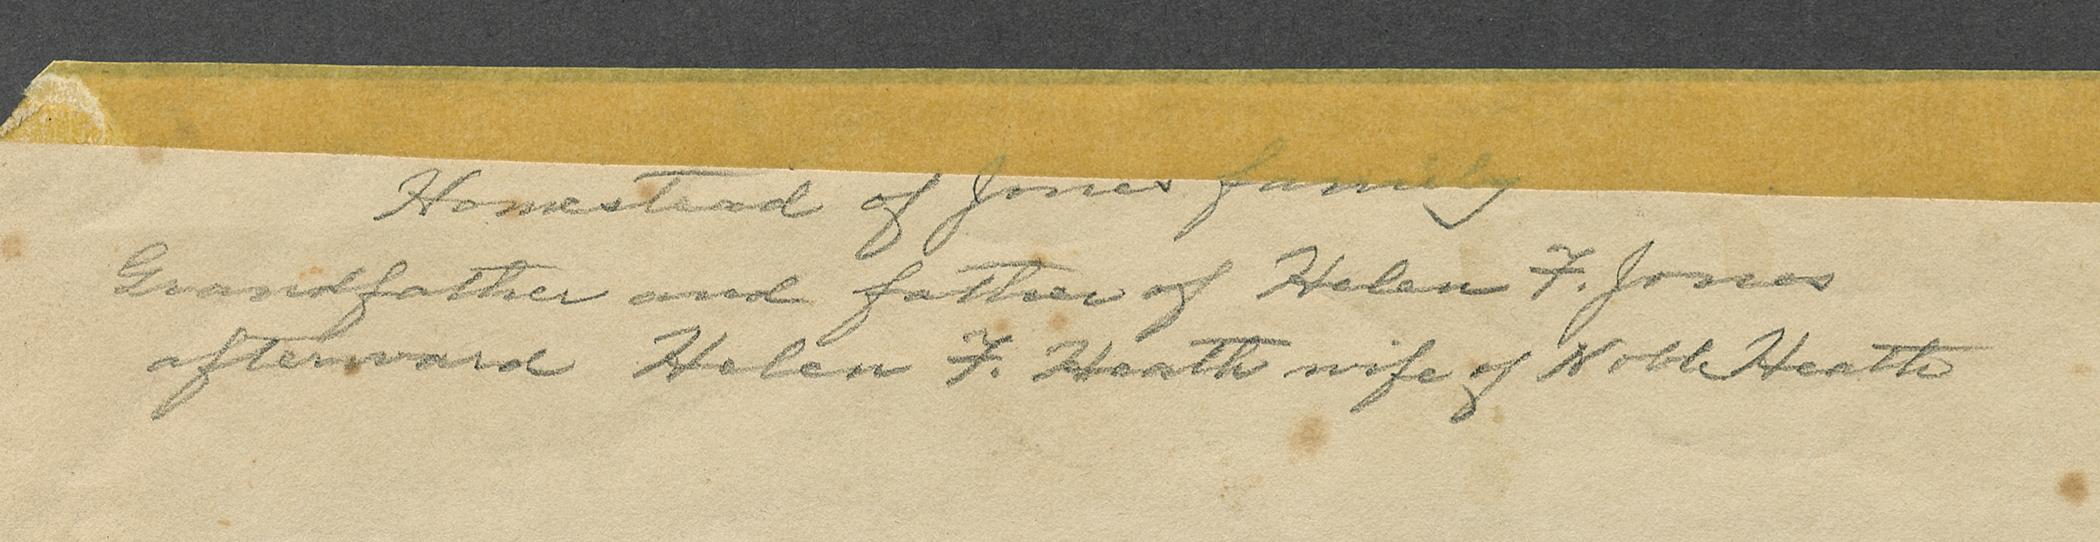 Homestead of Jones family
Grandfather and father of Helen F. Jones
afterward Helen F. Heath wife of Noble Heath